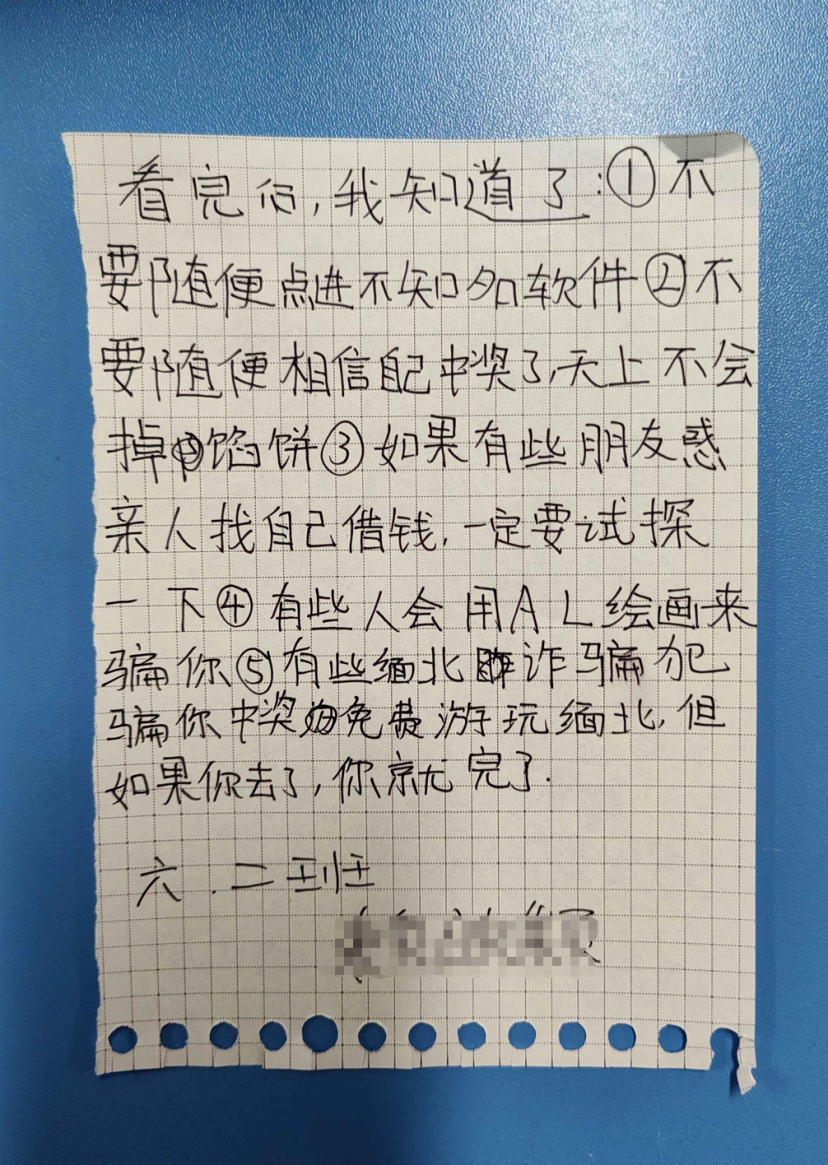 看完后,我知道了:①不
要随便点进不知名软件②不
要随便相信自己中奖了,天上不会
掉馅饼③如果有些朋友惑
亲人找自己借钱,一定要试探
一下④有些人会用AL绘画来
骗你⑤有些缅北诈骗犯
骗你中奖免费游玩缅北,但
如果你去了,你就完了.
六.二班